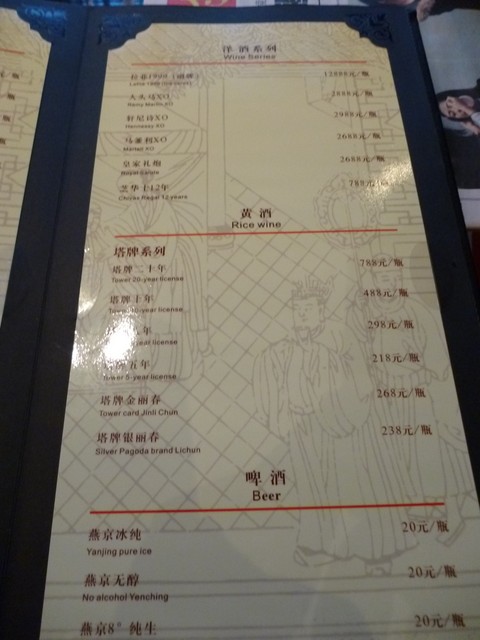 洋酒系列
Wine Series
12888元/瓶
人头马XO
Remy Martin XO
2888元/瓶
轩尼诗XO
Hennessy XO
2988元/瓶
马爹利XO
Martell XO
2688元/瓶
皇家礼炮
Royal Salute
2688元/瓶
芝华士12年
Chivas Regal 12 years
788元/瓶
黄酒
Rice wine
塔牌系列
塔牌二十年
Tower 20-year license
788元/瓶
塔牌十年
Tower 10-year license
488元/瓶
年
year license
298元/瓶
塔牌五年
Tower 5-year license
218元/瓶
塔牌金丽春
Tower card Jinli Chun
268元/瓶
塔牌银丽春
Silver Pagoda brand Lichun
238元/瓶
啤酒
Beer
燕京冰纯
Yanjing pure ice
20元/瓶
燕京无醇
No alcohol Yenching
20元/瓶
燕京8°纯生
20元/瓶